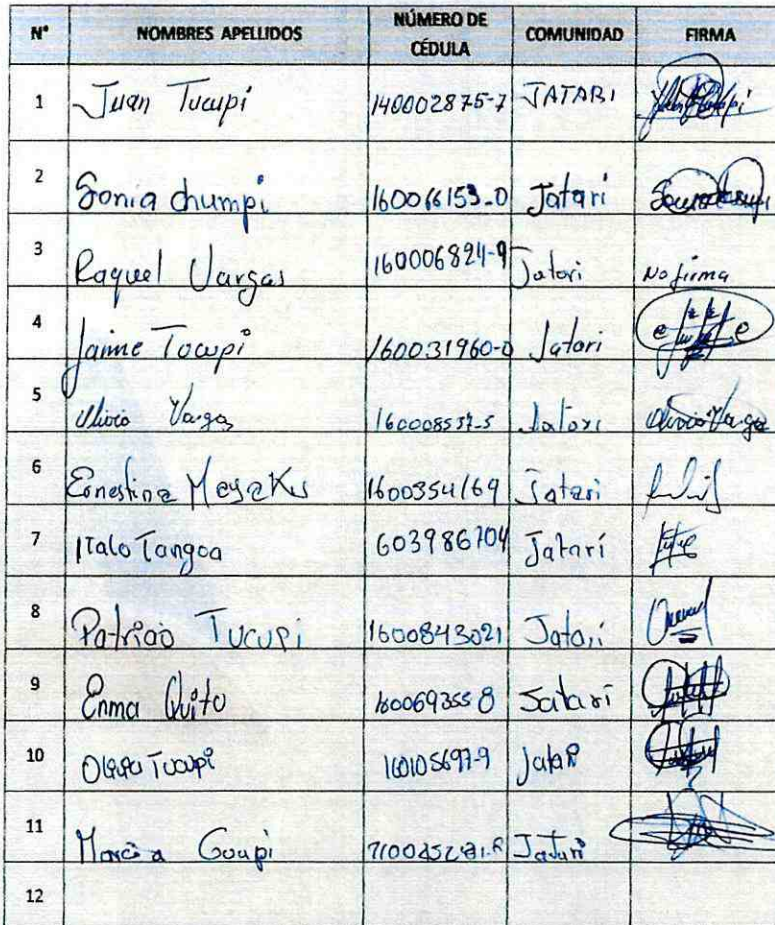 N° NOMBRES APELLIDOS NÚMERO DE CÉDULA COMUNIDAD FIRMA
1 Juan Tucupi 140002875-7 JATARI
2 Sonia chumpi 160066153-0 Jatari
3 Raquel Vargas 160006824-9 Jatari No firma
4 Jaime Tocupi 160031960-0 Jatari
5 Vargas 160008537-5 Jatari
6 Ernestina 1600354169 Jatari
7 Italo Tangoa 603986704 Jatari
8 Patricio Tucupi 1600843021 Jatari
9 Enma Quito 160069355 8 Jatari
10 Tucupi Jatari
11 Jatari
12